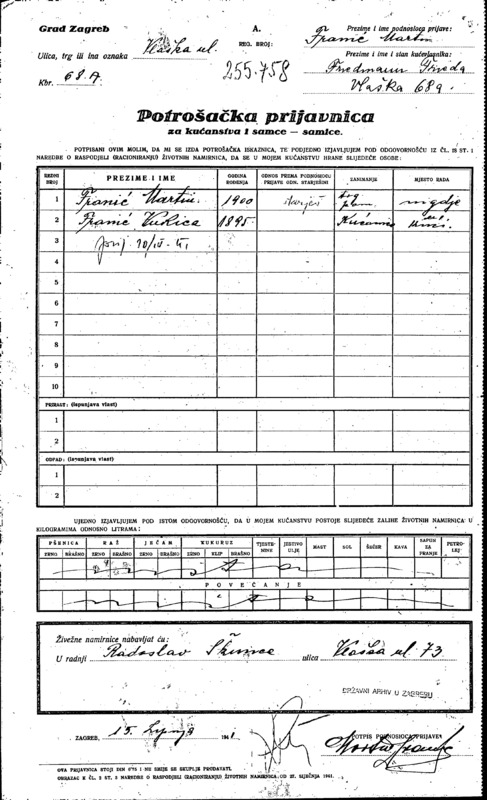 Grad Zagreb
A.
Prezime i ime podnosioca prijave:
Franić Martin
Ulica, trg ili ina oznaka Vlaška ul.
REG. BROJ:
255.758
Prezime i ime i stan kućevlasnika:
Friedmann Frieda
Kbr. 68.A
Vlaška 68a.
Potrošačka prijavnica
za kućanstva i samce — samice.
POTPISANI OVIM MOLIM, DA MI SE IZDA POTROŠAČKA ISKAZNICA, TE PODJEDNO IZJAVLJUJEM POD ODGOVORNOŠĆU IZ ČL. 18 ST. 1
NAREDBE O RASPODJELI (RACIONIRANJU) ŽIVOTNIH NAMIRNICA, DA SE U MOJEM KUĆANSTVU HRANE SLIJEDEĆE OSOBE:
REDNI BROJ
PREZIME I IME
GODINA ROĐENJA
ODNOS PREMA PODNOSIOCU PRIJAVE ODN. STARJEŠINI
ZANIMANJE
MJESTO RADA
1 Franić Martin 1900 nigdje
2 Franić 1895
3
4
5
6
7
8
9
10
PRIRAST: (ispunjava vlast)
1
2
ODPAD: (ispunjava vlast)
1
2
UJEDNO IZJAVLJUJEM POD ISTOM ODGOVORNOŠĆU, DA U MOJEM KUĆANSTVU POSTOJE SLIJEDEĆE ZALIHE ŽIVOTNIH NAMIRNICA U
KILOGRAMIMA ODNOSNO LITRAMA:
PŠENICA RAŽ JEČAM KUKURUZ TJESTENINE JESTIVO ULJE MAST SOL ŠEĆER KAVA SAPUN ZA PRANJE PETROLEJ
ZRNO BRAŠNO ZRNO BRAŠNO ZRNO BRAŠNO ZRNO KLIP BRAŠNO
POVEĆANJE
Živežne namirnice nabavljat ću:
U radnji Radoslav ulica Vlaška ul 73
DRŽAVNI ARHIV U ZAGREBU
ZAGREB, 15. Lipnja 1941
POTPIS PODNOSIOCA PRIJAVE:
Martin Franić
OVA PRIJAVNICA STOJI DIN 0.75 I NE SMIJE SE SKUPLJE PRODAVATI.
OBRAZAC K ČL. 2 ST. 2 NAREDBE O RASPODJELI (RACIONIRANJU) ŽIVOTNIH NAMIRNICA OD 25. SIJEČNJA 1941.